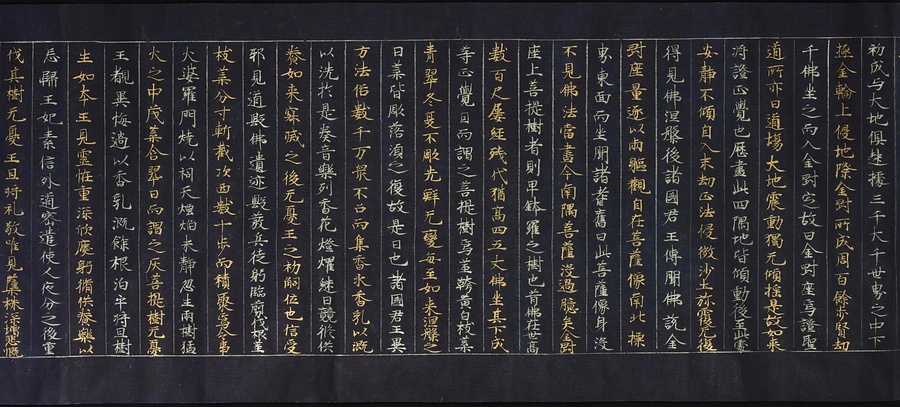 初成与大地俱起據三千大千世界之中下
極金輪上侵地際金剛所成周百餘步賢劫
千佛坐之而入金剛定故曰金剛座焉證聖
道所亦曰道場大地震動獨无傾搖是故如來
將證正覺也歷此四隅地皆傾動後至此處
安靜不傾自入末劫正法侵微沙土弥覆无復
得見佛涅槃後諸國君王傳聞佛說金
剛座量遂以兩軀觀自在菩薩像南北標
界東面而坐聞諸耆舊曰此菩薩像身沒
不見佛法當盡今南隅菩薩沒過臆矣金剛
座上菩提樹者則畢鉢羅之樹也昔佛在世高
數百尺屢經殘伐猶高四五丈佛坐其下成
等正覺因而謂之菩提樹焉莖幹黃白枝葉
青翠冬夏不彫光鮮无變每至如來涅槃之
日葉皆彫落須之復故是日也諸國君王異
方法俗數千万衆不召而集香水香乳以溉
以洗於是奏音樂列香花燈燿継日競修供
養如來寂滅之後无憂王之初嗣位也信受
邪見道毀佛遺迹興發兵徒躬臨剪伐根莖
枝葉分寸斬截次西數十步而積聚焉令事
火婆羅門燒以祠天煙焰未靜忽生兩樹猛
火之中茂葉含翠因而謂之灰菩提樹无憂
王覩異悔過以香乳溉餘根洎乎将旦樹
生如本王見靈恠重深欣慶躬脩供養樂以
忘歸王妃素信外道密遣使人夜分之後重
伐其樹无憂王旦将礼敬惟見蘖株深增悲慨